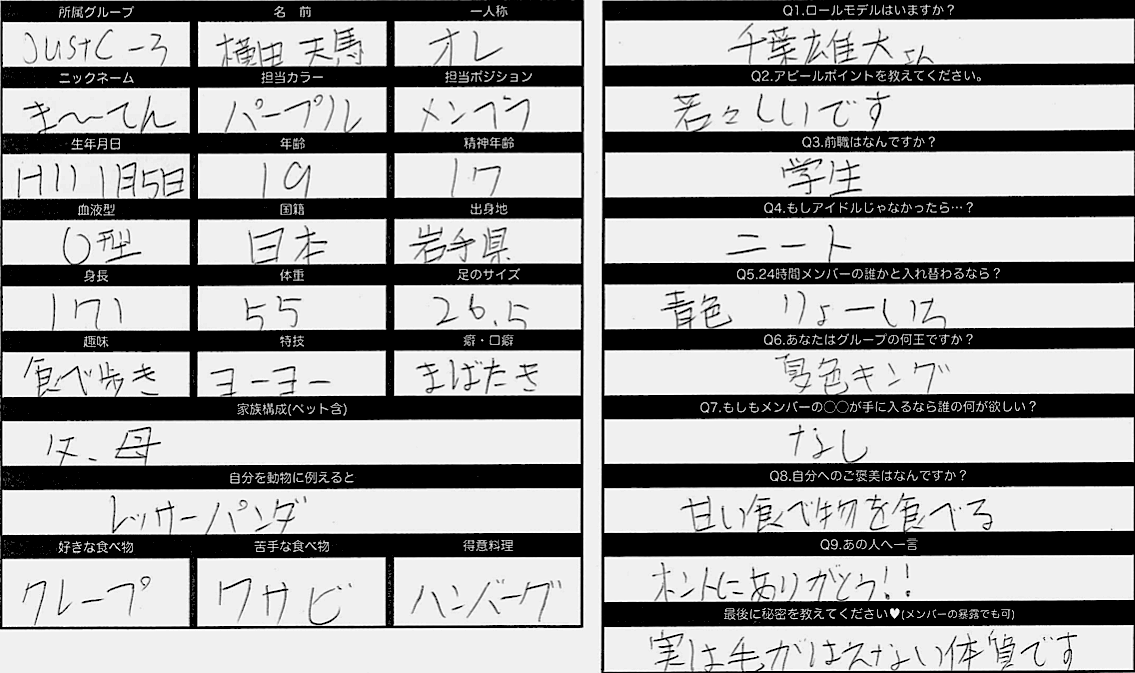 所属グループ 名前 一人称
JUStC-3 横田天馬 オレ
ニックネーム 担当カラー 担当ポジション
ま〜〜てん パープル メンプラ
生年月日 年齢 精神年齢
H11 1月5日 19 17
血液型 国籍 出身地
O型 日本 岩手県
身長 体重 足のサイズ
171 55 26.5
趣味 特技 癖・口癖
食べ歩き ヨーヨー まばたき
家族構成(ペット含)
父、母
自分を動物に例えると
レッサーパンダ
好きな食べ物 苦手な食べ物 得意料理
クレープ ワサビ ハンバーグ
Q1.ロールモデルはいますか？
千葉雄大さん
Q2.アピールポイントを教えてください。
若々しいです
Q3.前職はなんですか？
学生
Q4.もしアイドルじゃなかったら…？
ニート
Q5.24時間メンバーの誰かと入れ替わるなら？
青色 りょーいち
Q6.あなたはグループの何王ですか？
夏色キング
Q7.もしもメンバーの◯◯が手に入るなら誰の何が欲しい？
なし
Q8.自分へのご褒美はなんですか？
甘い食べ物を食べる
Q9.あの人へ一言
ホントにありがとう!!
最後に秘密を教えてください♥(メンバーの暴露でも可)
実は毛がはえない体質です